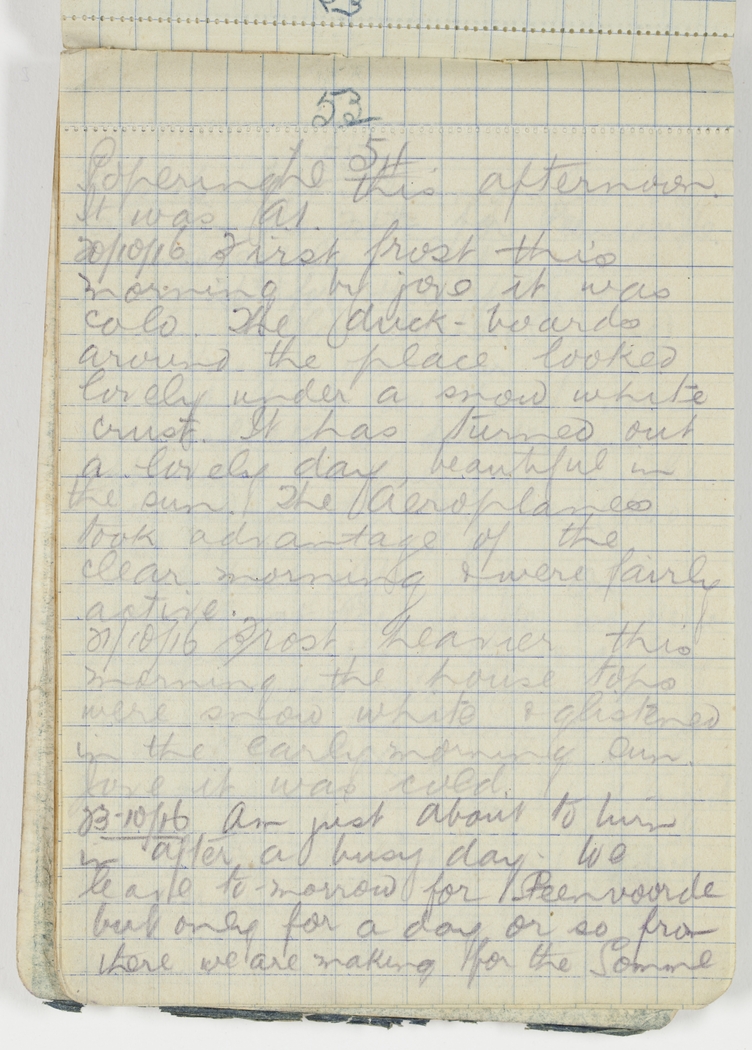 53
54
Poperinghe this afternoon.
It was A1.
20/10/16 First frost this
morning by jove it was
cold. The duck-boards
around the place looked
lovely under a snow white
crust. It has turned out
a lovely day, beautiful in
the sun. The Aeroplanes
took advantage of the
clear morning & were fairly
active.
21/10/16 Frost heavier this
morning the house tops
were snow white & glistened
in the early morning sun.
Jove it was cold.
23-10/16 Am just about to turn
in after a busy day. We
leave to-morrow for Steenvoorde
but only for a day or so from
there we are making for the Somme